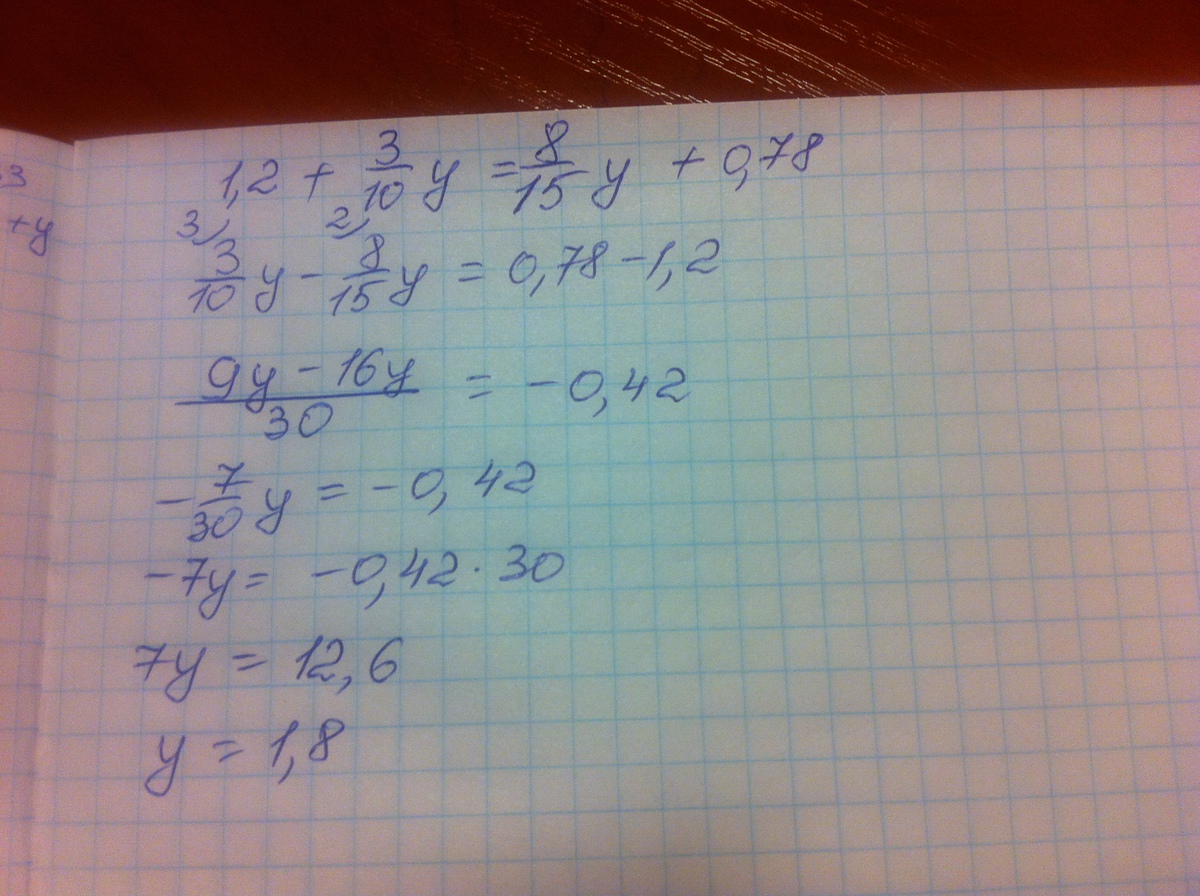 1,2 + 3/10 y = 8/15 y + 0,78
3) 2)
3/10 y - 8/15 y = 0,78 - 1,2
(9y - 16y)/30 = -0,42
-7/30 y = -0,42
-7y = -0,42 · 30
7y = 12,6
y = 1,8
+y